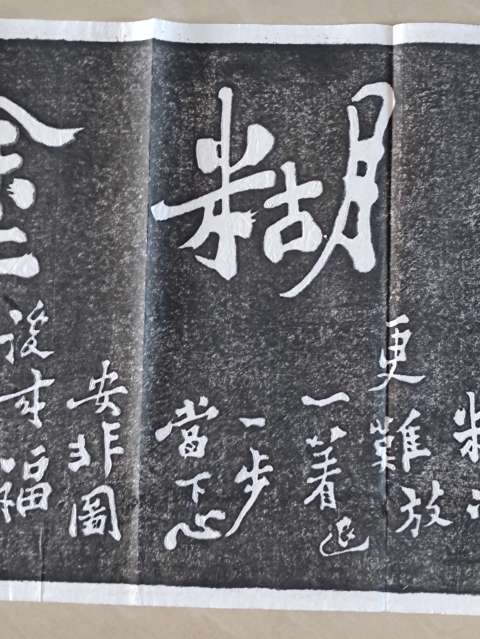 糊
更難放
一著退
一步
當下心
安非圖
後來福